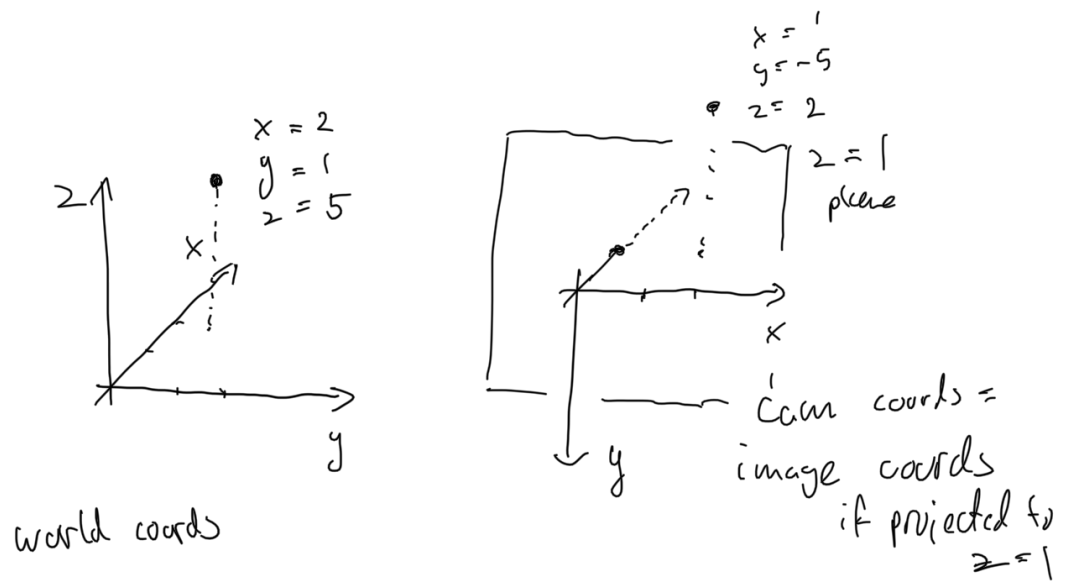 z
x = 2
y = 1
z = 5
x
y
world coords
x = 1
y = -5
z = 2
z = 1
plane
x
y
Cam coords =
image coords
if projected to
z = 1